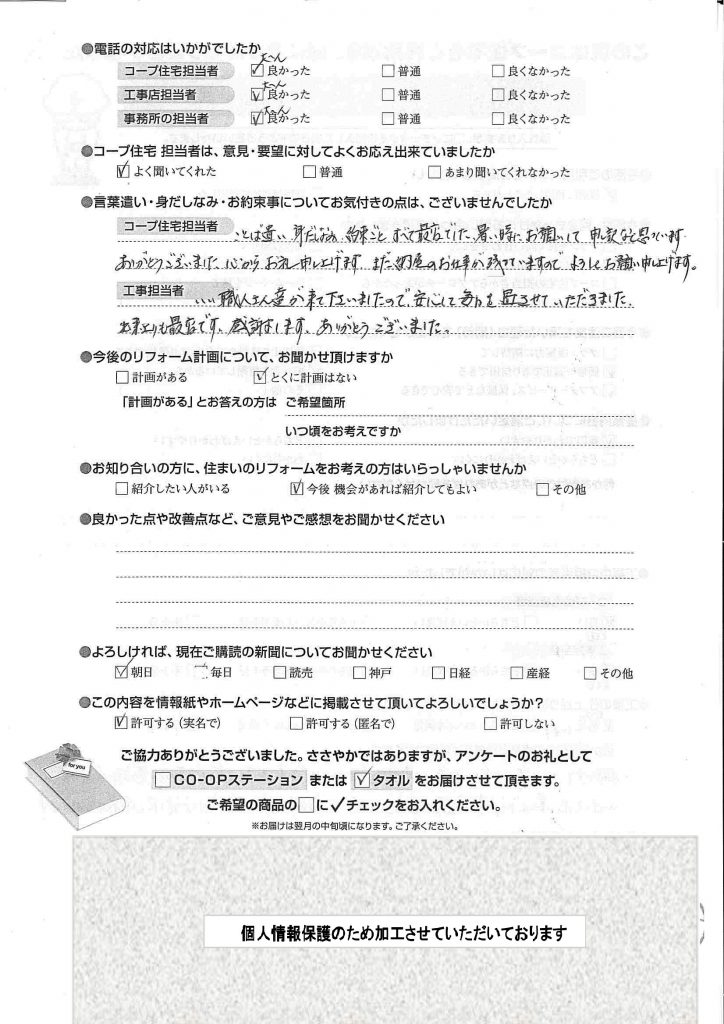 ●電話の対応はいかがでしたか
コープ住宅担当者 ☑良かった □普通 □良くなかった
たいへん
工事店担当者 ☑良かった □普通 □良くなかった
たいへん
事務所の担当者 ☑良かった □普通 □良くなかった
たいへん
●コープ住宅 担当者は、意見・要望に対してよくお応え出来ていましたか
☑よく聞いてくれた □普通 □あまり聞いてくれなかった
●言葉遣い・身だしなみ・お約束事についてお気付きの点は、ございませんでしたか
コープ住宅担当者 ことば遣い 身だしなみ 約束ごと すべて最高でした 暑い時にお願いして 申訳なく思っています
ありがとうございました 心からお礼申し上げます まだ のお仕事が残っていますので よろしくお願い申し上げます。
工事担当者 いい職人さん達が来て下さいましたので 安心して毎日を させていただきました
出来上りも最高です。感謝します。ありがとうございました。
●今後のリフォーム計画について、お聞かせ頂けますか
□計画がある ☑とくに計画はない
「計画がある」とお答えの方は ご希望箇所
いつ頃をお考えですか
●お知り合いの方に、住まいのリフォームをお考えの方はいらっしゃいませんか
□紹介したい人がいる ☑今後 機会があれば紹介してもよい □その他
●良かった点や改善点など、ご意見やご感想をお聞かせください
●よろしければ、現在ご購読の新聞についてお聞かせください
☑朝日 □毎日 □読売 □神戸 □日経 □産経 □その他
●この内容を情報紙やホームページなどに掲載させて頂いてよろしいでしょうか？
☑許可する（実名で） □許可する（匿名で） □許可しない
for you
ご協力ありがとうございました。ささやかではありますが、アンケートのお礼として
□CO-OPステーション または ☑タオル をお届けさせて頂きます。
ご希望の商品の□に✓チェックをお入れください。
※お届けは翌月の中旬頃になります。ご了承ください。
個人情報保護のため加工させていただいております